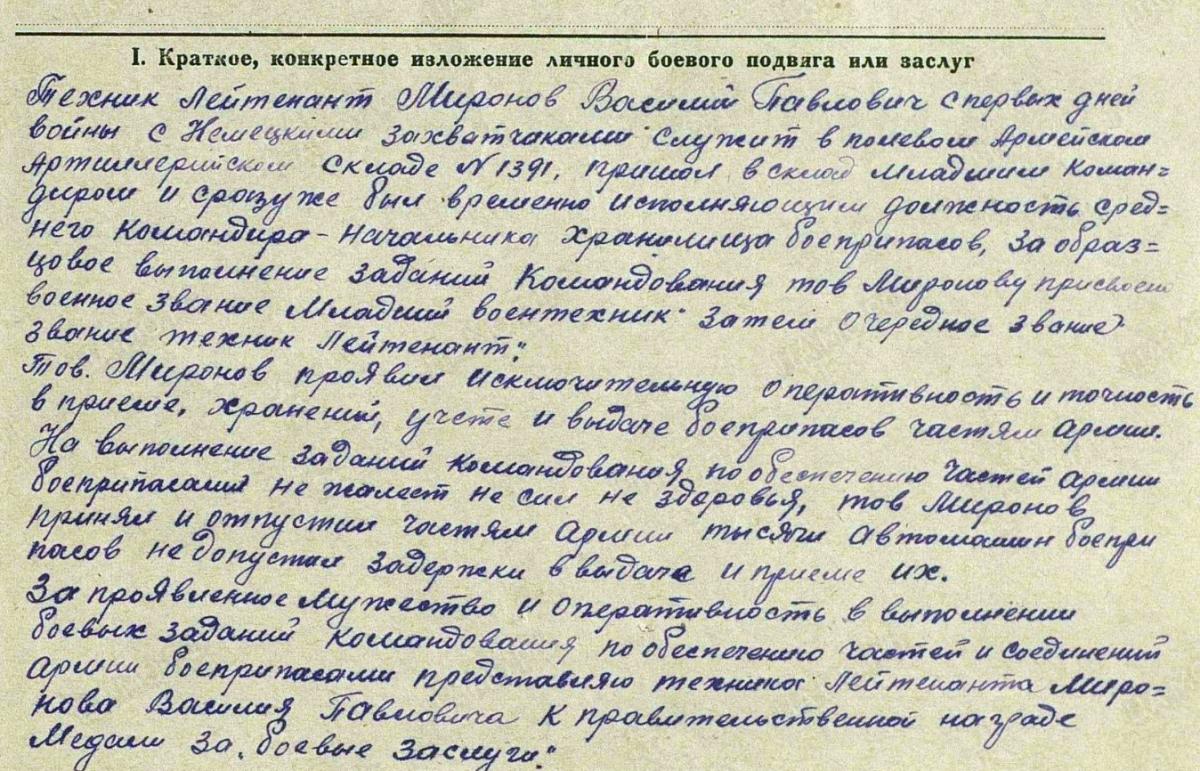 I. Краткое, конкретное изложение личного боевого подвига или заслуг
Техник Лейтенант Миронов Василий Павлович с первых дней
войны с Немецкими захватчиками служит в полевом Армейском
Артиллерийском складе N 1391, пришол в склад младшим Коман=
диром и сразу же был временно исполняющим должность сред=
него командира - начальника хранилища боеприпасов, за образ=
цовое выполнение заданий Командования тов Миронову присвоен
военное звание Младший воентехник затем очередное звание
звание техник Лейтенант".
Тов. Миронов проявил исключительную оперативность и точность
в приеме, хранений, учете и выдаче боеприпасов частям армии.
На выполнение заданий командования по обеспечению частей армии
боеприпасами не жалеет не сил не здоровья, тов Миронов
принял и отпустил частям армии тысячи автомашин боепри
пасов не допустил задержки в выдача и приеме их.
За проявленное мужество и оперативность в выполнении
боевых заданий командования по обеспечению частей и соединений
армии боеприпасами представляю техника Лейтенанта Миро=
нова Василия Павловича к правительственной награде
Медали За „боевые заслуги."